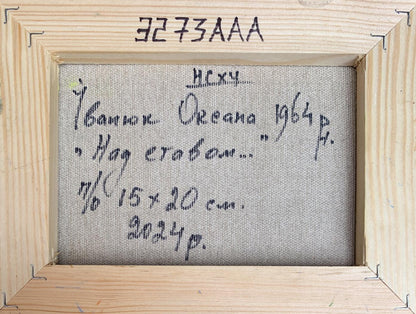 Э273ААА
НСХУ
Іванюк Оксана 1964 р.н.
"Над ставом..."
п/о 15 х 20 см.
2024 р.